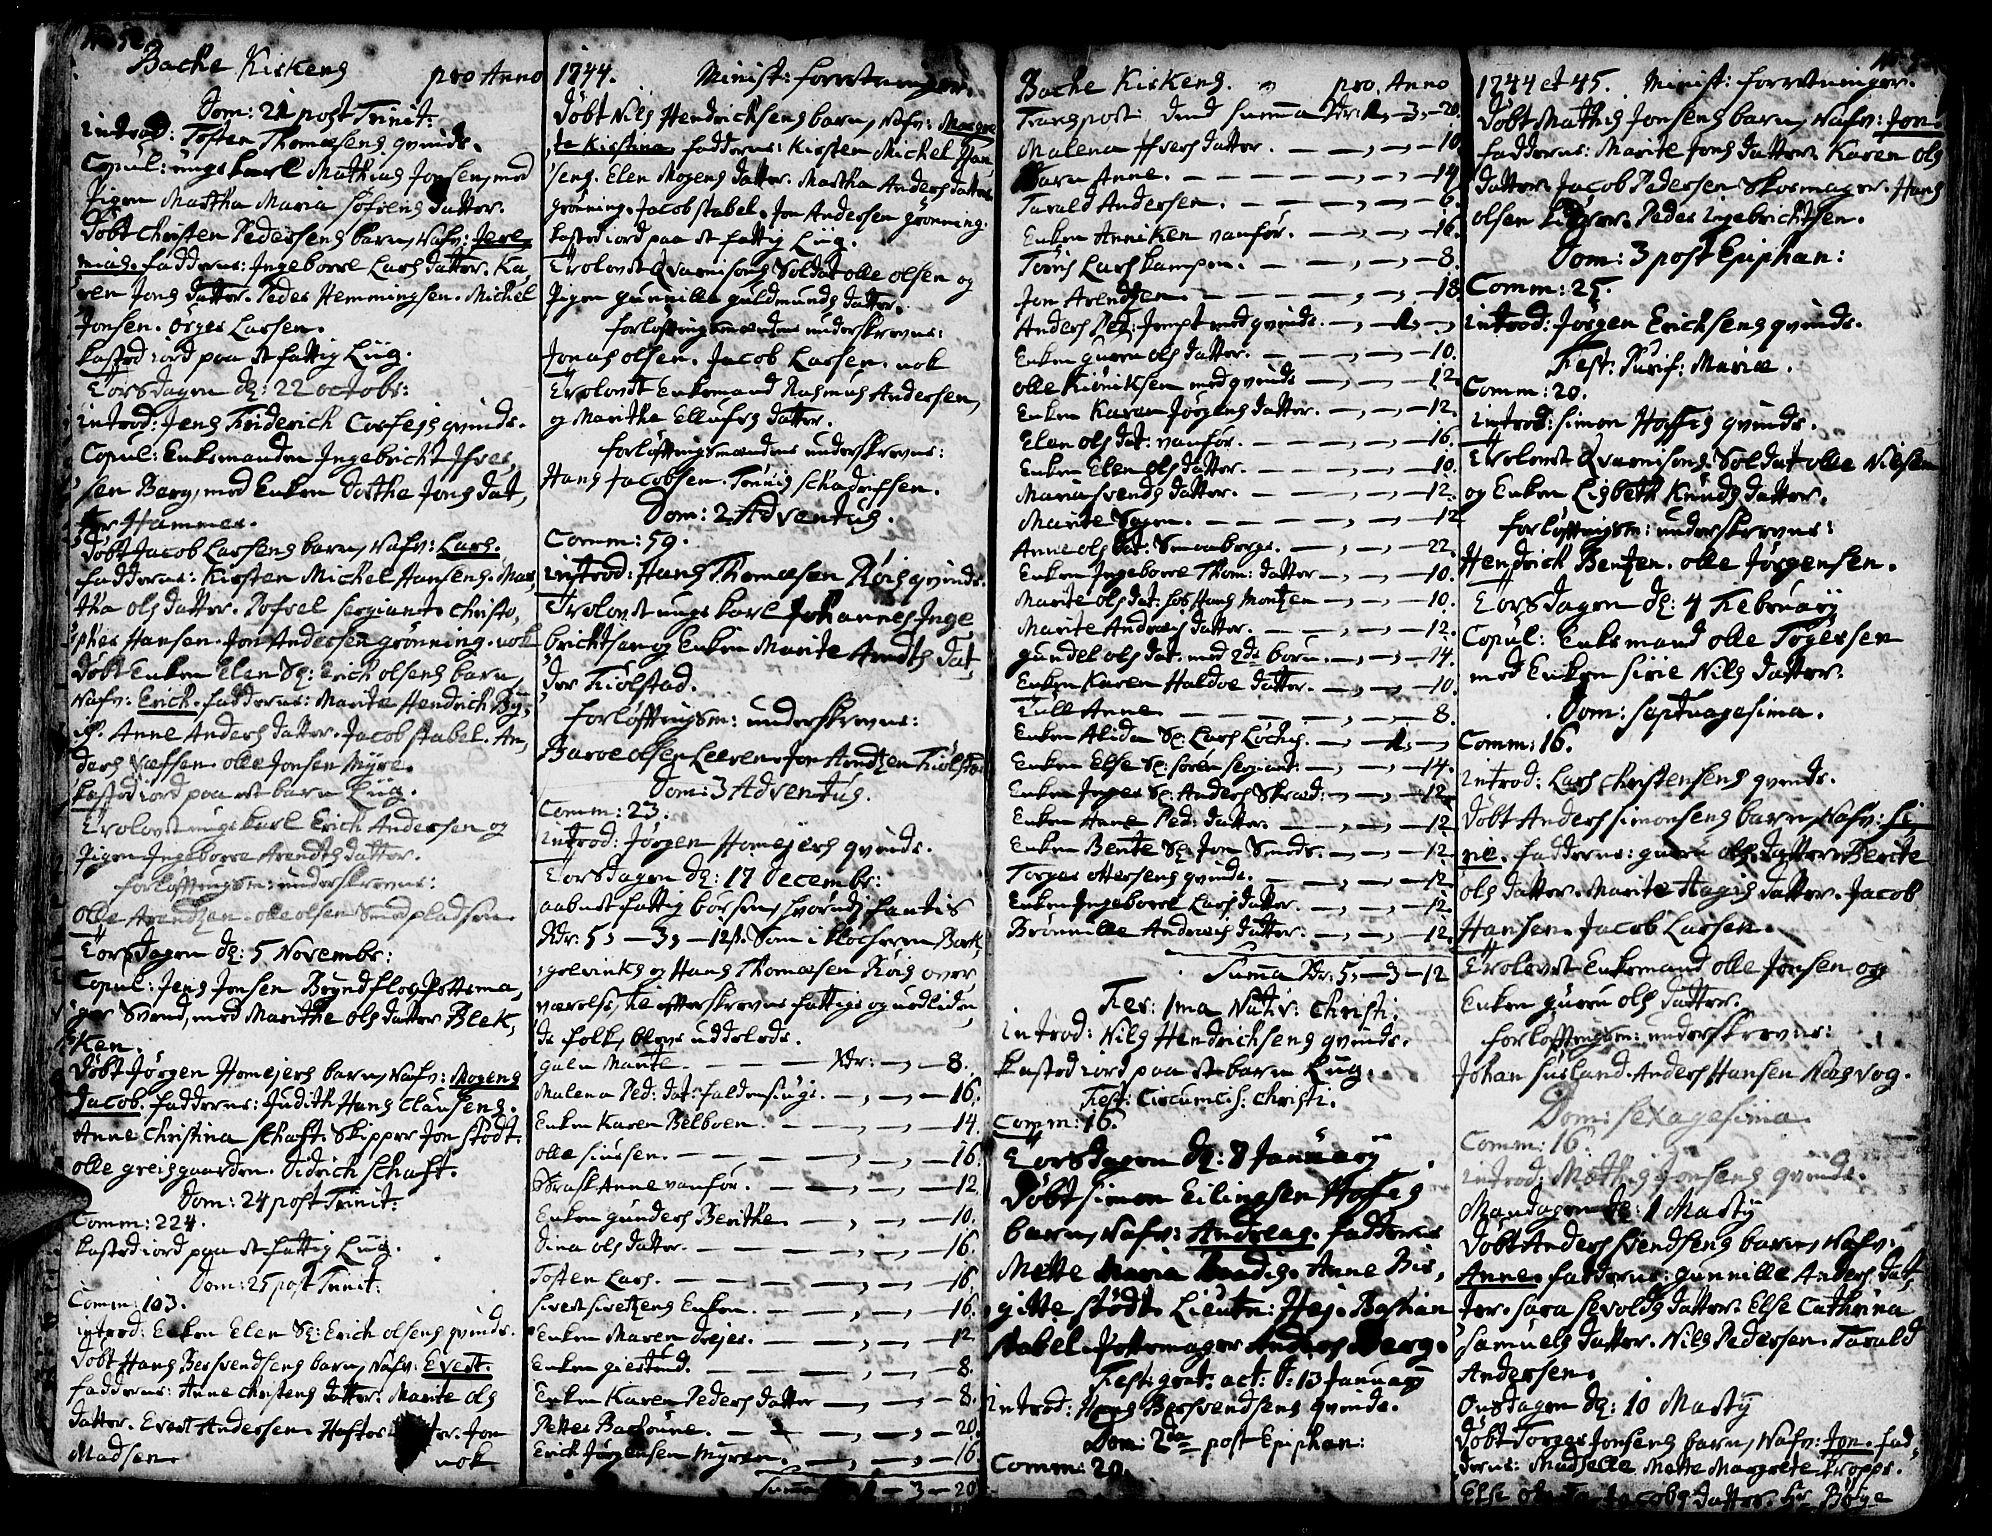 Backe Kirkens pro Anno
Dom: 21 post Trinit:
introd: Tosten Thomæsens qvinde.
Copul: unge karl Mathias Jonsen, med
Pigen Martha Maria Søfrens datter.
Døbt Christen Pedersens barn, Nafv: Jere,
mias. fadderne: Ingeborre Lars datter. Ka,
ren Jons datter. Peder Hemmingsen. Michel
Jonsen. Örger Larsen.
kasted iord paa et fattig Liig.
Torsdagen d: 22 octobr:
introd: Jens Friderich Corfejs qvinde.
Copul: Enkemanden Ingebricht Ifver,
sen Berg, med Enken Dorthe Jons dat,
ter Hammer.
Døbt Jacob Larsens barn, Nafv: Lars.
fadderne: Kirsten Michel Hansens. Mar,
tha ols datter. Pofvel sergiant. Christo,
pher Hansen. Jon Andersen grønning. nok
Døbt Enken Elen Sl: Erich olsens barn,
Nafv: Erich. fadderne: Marite Hendrich By,
Anne Anders datter. Jacob stabel. An,
ders olle Jonsen Myre.
kasted iord paa et barn Liig.
Trolovet unge karl Erich Andersen og
Pigen Ingeborre Arendts datter.
forløftningsm: underskrevne:
Olle Arentzen. olle olsen Smedpladsen.
Torsdagen d: 5 Novembr:
Copul: Jens Jonsen Pottema,
ger Svend, med Marithe ols datter Blek,
ken.
Døbt Jørgen Homejers barn, Nafv: Mogens
Jacob. fadderne: Judith Hans Clausens.
Anne Christina Schaft. Skipper Jon Stödt.
olle greisgaarden. Didrich Schaft.
Dom: 24 post Trinit:
Comm: 224.
kasted iord paa et fattig Liig.
Dom: 25 post Trinit:
Comm: 103.
introd: Enken Elen Sl: Erich olsens qvinde.
Døbt Hans Bersvendsens barn, Nafv: Evert.
fadderne: Anne Christens datter. Marite ols
datter. Evert Andersen. Jon
Madsen. nok
1744. Minist: forretninger.
Døbt Nils Hendrichsens barn, Nafv: Margre
te Kirstina. fadderne: Kirsten Michel Han,
sens. Elen Mogens datter. Martha Anders datter
grønning. Jacob stabel. Jon Andersen grønning.
kasted iord paa et fattig Liig.
Trolovet Qvarnisons Soldat olle olsen og
Pigen gunnille guldmunds datter.
forløftningsmændene underskrevne:
Jonas olsen. Jacob Larsen. nok
Trolovet Enkemand Rasmus Andersen,
og Marithe Ellufs datter.
forløftningsmændene underskrevne:
Hans Jacobsen. Tønnis
Dom: 2 Adventus.
Comm: 59.
introd: Hans Thomæsen Röis qvinde.
Trolovet unge karl Johannes Inge
brichtsen og Enken Marite Arndts dat,
der Kiölstad.
forløftningsm: underskrevne:
Baroe olsen Leeren. Jon Arndtzen Kiölstad
Dom: 3 Adventus.
Comm: 23.
introd: Jørgen Homejers qvinde.
Torsdagen d: 17 Decembr:
aabnet fattig borsen, hvorudj fantis
Rdr: 5, — 3, — 12ß. Som i klocheren Bork,
grevinks og Hans Thomæsen Röis over
værelse, til efterskrevne fattige og nedliden,
de folk, bleve uddelede.
galen Marite. — — — Rdr: —, — 8.
Malena Ped: dat: faldensiuge. —, —, — 16.
Enken Karen Belboen. —, —, — 14.
olle siursen. — — —, —, — 16.
Brask Anne vanför. —, —, — 12.
Enken gunders Berithe. —, —, — 10.
Dina ols datter. —, —, — 16.
Tosten Lars. —, —, — 16
Sivert Sivertzens Enken. —, —, — 16.
Enken Maren Drejer. —, —, — 12
Enken giertrud. —, —, — 8.
Enken Karen Peders datter —, —, — 8.
Petter —, —, — 20.
Erick Jørgensen Myren. —, —, — 16
Summa — 3 — 20
Backe Kirkens. pro. Anno
Transport: dend summa Rdr: 1, — 3, — 20.
Malena Ifvers datter. —, —, — 10
Karn Anne. —, —, — 14.
Tarald Andersen. —, —, — 6.
Enken Anniken vanför. —, —, — 16.
Tønis Lars kampen. —, —, — 8.
Jon Arendsen. —, —, — 18.
Anders Ped: Jempt med qvinde. —, — 1, —
Enken guren ols datter. —, —, — 10.
olle med qvinde —, —, — 12
Enken Karen Jørgens datter. —, —, — 12.
Elen ols dat: vanför. —, —, — 16.
Enken Elen ols datter. —, —, — 10.
Maria Svends datter. —, —, — 12.
Marite Sagen. —, —, — 12
Anne ols dat: Smeaborge. —, —, — 22.
Enken Ingeborre Thom: datter —, —, — 10.
Marite ols dat: hos Hans Montzen —, —, — 10.
Marite Andreæs datter. —, —, — 12.
gundel ols dat: med 2de børn. —, —, — 14.
Enken Karen Haldoe datter. —, —, — 10.
Tulle Anne. —, —, — 8.
Enken Alida Sl: Lars Lockes. —, — 1, —
Enken Else Sl: søren sergiant: —, —, — 14.
Enken Inger Sl: Anders Skræd: —, —, — 12
Enken Anne Ped: datter. —, —, — 12
Enken Bente Sl: Jon Smeds. —, —, — 12
Torger ottersens qvinde. —, —, — 12
Enken Ingeborre Lars datter. —, —, — 12.
Brønnille Andreæs datter. —, —, — 12.
Summa Rdr: 5, — 3 — 12
Fer: 1ma Nativ: Christi:
introd: Nils Hendrichsens qvinde.
kasted iord paa et barn Liig.
Fest: Circumcis: Christi.
Comm: 16.
Torsdagen d: 8 January
Døbt Simon Eilingsen Hoffes
barn, Nafv: Andreas. fadderne
Mette Maria Anne Bir,
gitte Stödt. Lieutn: Hej. Bastian
stabel. Pottemager Anders Berg.
Fest: grat: act: d: 13 January
introd: Hans Bersvendsens qvinde.
Dom: 2da post Epiphan:
Comm: 20.
1744 et 45. Minist: forretninger.
Døbt Mathis Jonsens barn, Nafv: Jon.
fadderne: Marite Jons datter. Karen ols
datter. Jacob Pedersen Skoemager. Hans
olsen Peder Ingebrichtsen.
Dom: 3 post Epiphan:
Comm: 25.
introd: Jørgen Erichsens qvinde.
Fest: Purif: Mariæ.
Comm: 20.
introd: Simon Hoffes qvinde.
Trolovet Qvarnisons Soldat olle Nilsen
og Enken Lisbeth Knuds datter.
forløftningsm: underskrevne:
Hendrich Bentzen. olle Jørgensen.
Torsdagen d: 4 February
Copul: Enkemand olle Togersen
med Enken Sirie Nils datter.
Dom: Septuagesima.
Comm: 16.
introd: Lars Christensens qvinde.
Døbt Anders Simonsens barn, Nafv: Si,
ne. fadderne: guren ols datter. Berite
ols datter. Marite Aagis datter. Jacob
Hansen. Jacob Larsen.
Trolovet Enkemand olle Jonsen og
Enken guren ols datter.
forløftningsm: underskrevne:
Johan Susland. Anders Hansen
Dom: Sexagesima.
Comm: 16.
introd: Mathis Jonsens qvinde.
Mandagen d: 1 Marty
Døbt Anders Svendsens barn, Nafv:
Anne. fadderne: gunnille Anders dat,
ter. Sara Sevolds datter. Else Cathrina
Samuels datter. Nils Pedersen. Tarald
Andersen.
Onsdagen d: 10 Marty
Døbt Torger Jonsens barn, Nafv: Jon. fad,
derne: Madselle Mette Margrete Kropps.
Else Jacobs datter. Hr